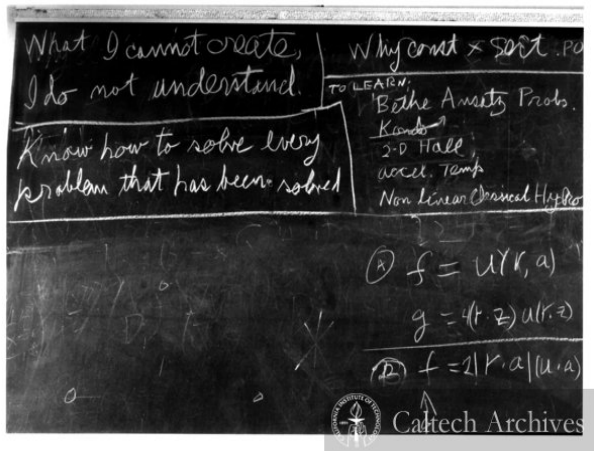 What I cannot create,
I do not understand.
Know how to solve every
problem that has been solved
Why const × sort . PO
TO LEARN:
Bethe Ansatz Probs.
Kondo
2-D Hall
accel. Temp
Non Linear Classical Hydro
Ⓐ f = u(r, a)
g = 4(r·z) u(r,z)
f = 2|r·a|(u·a)
CALIFORNIA INSTITUTE OF TECHNOLOGY
Caltech Archives